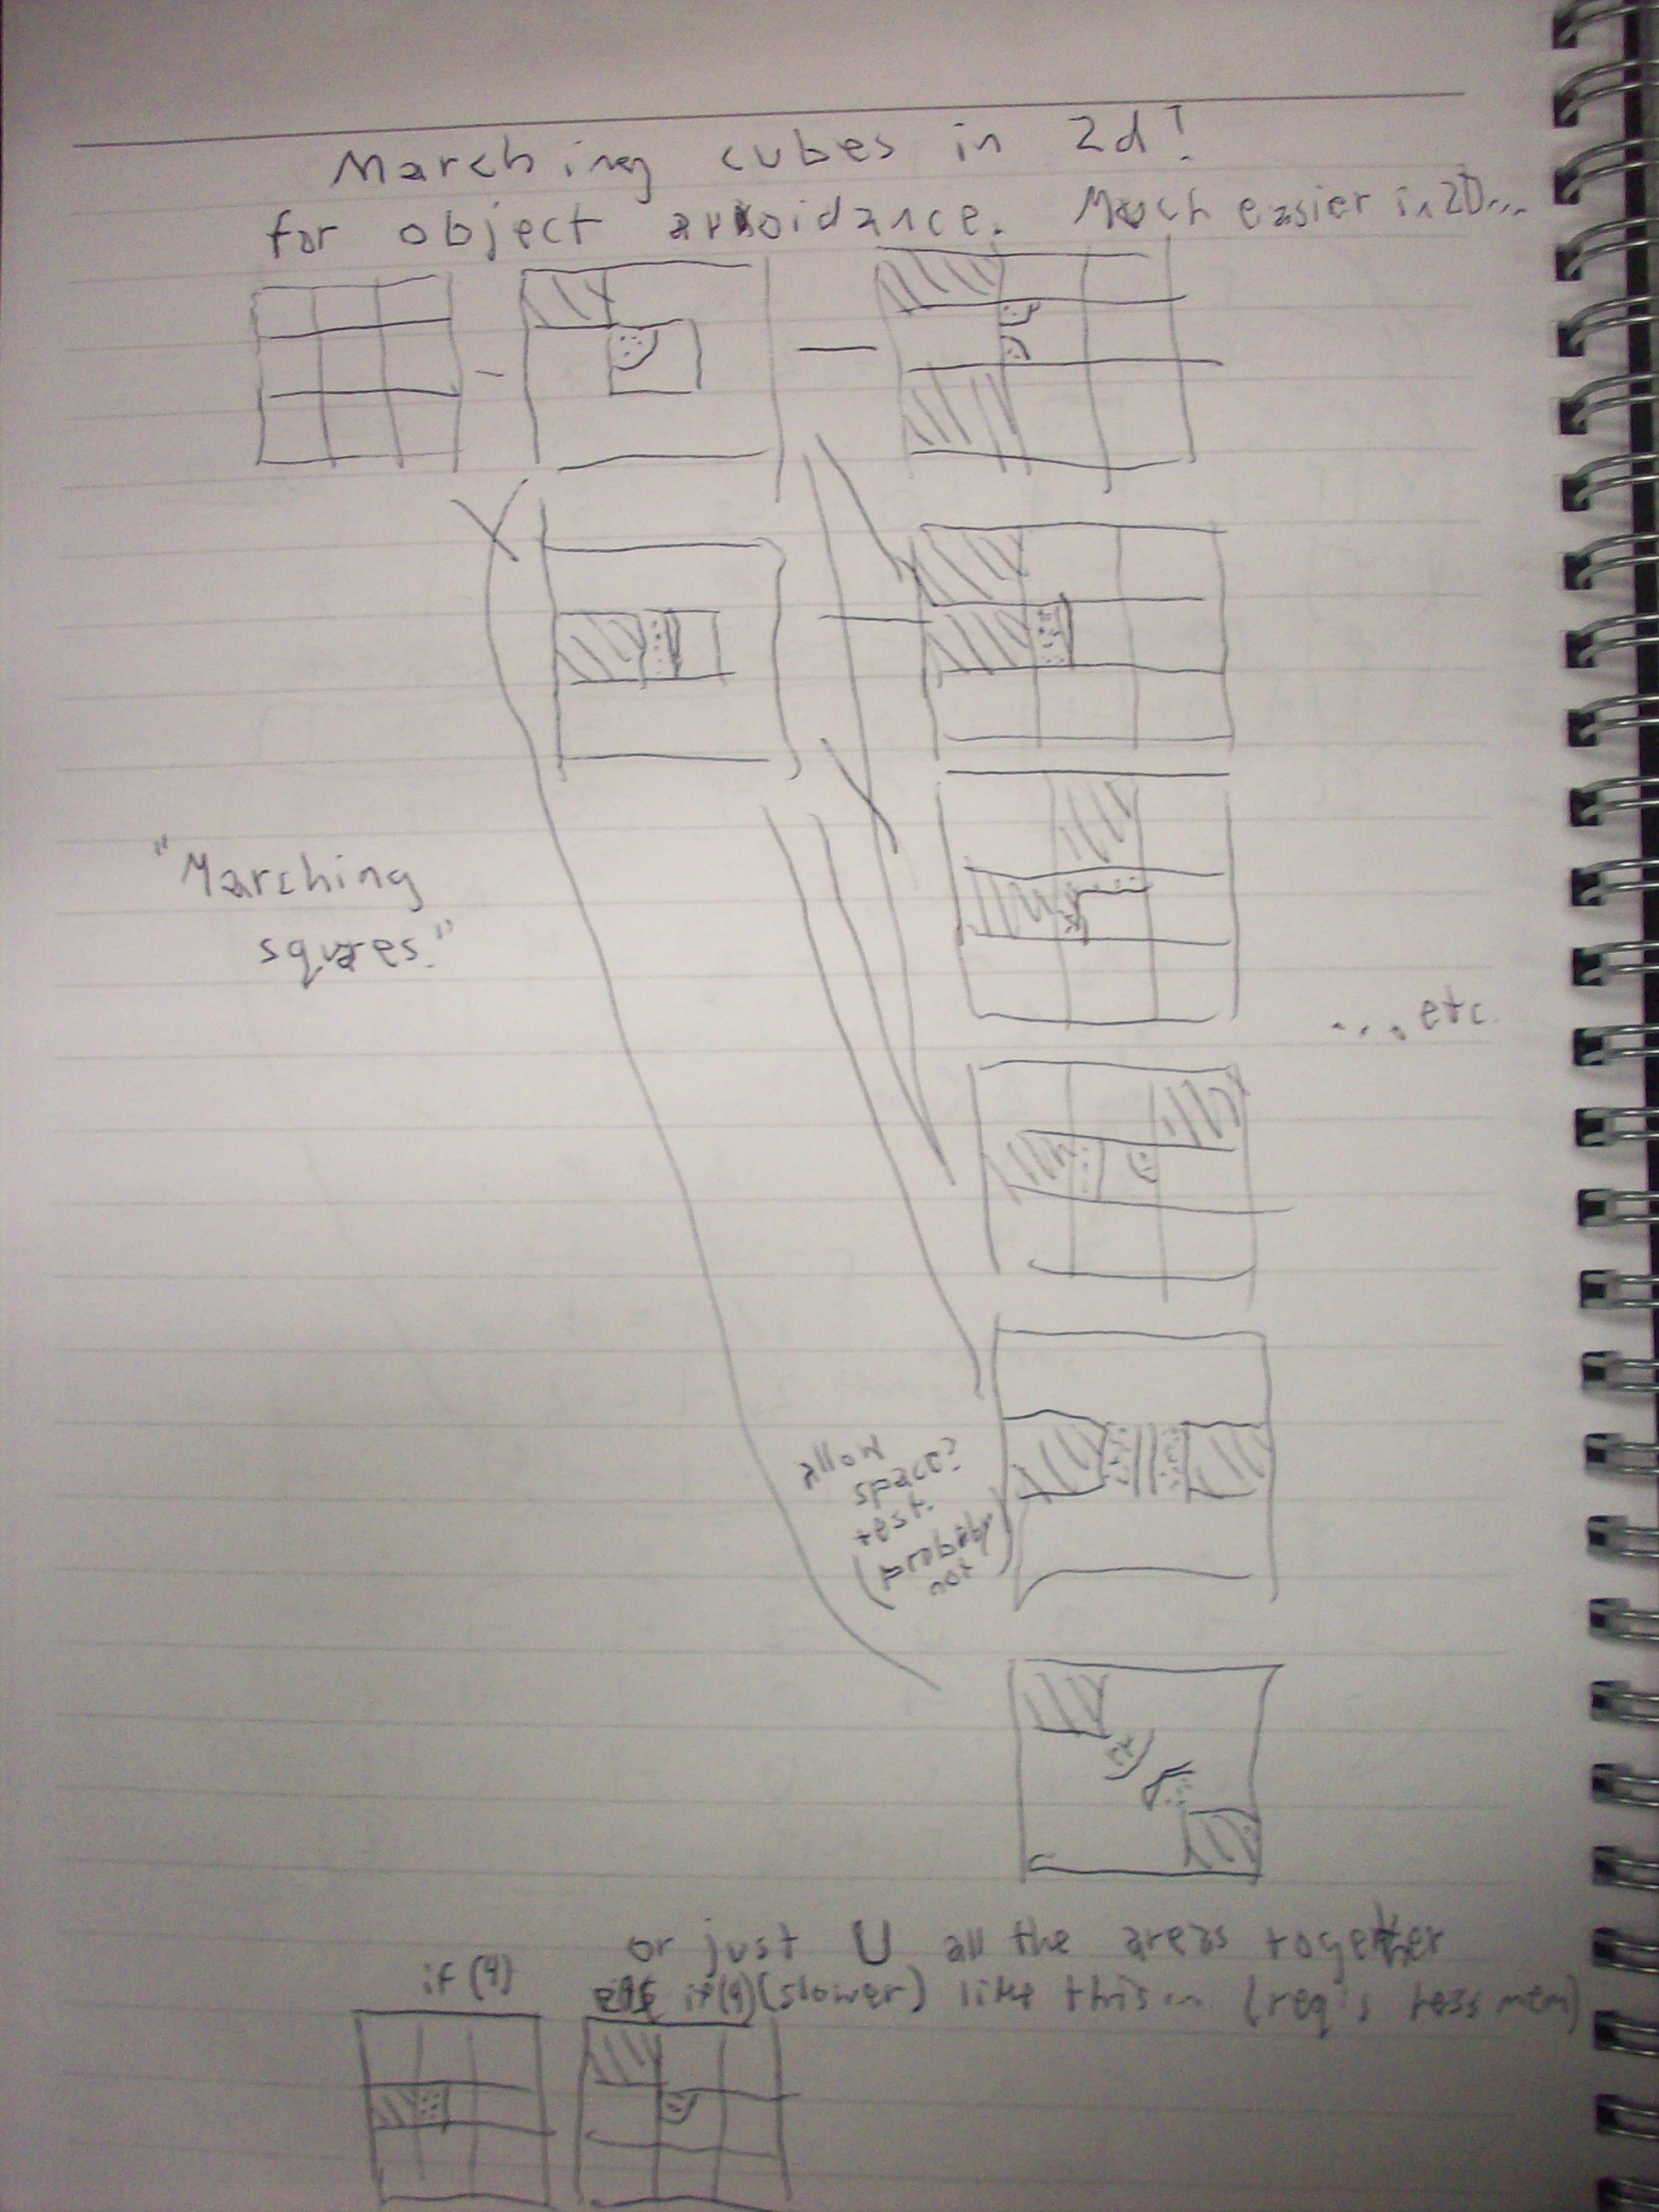 Marching cubes in 2d!
for object avoidance. Much easier in 2D...
"Marching
squares."
... etc.
allow
space?
test.
(probably
not)
or just U all the areas together
if (4)
if(4) (slower) like this (req's less mem)